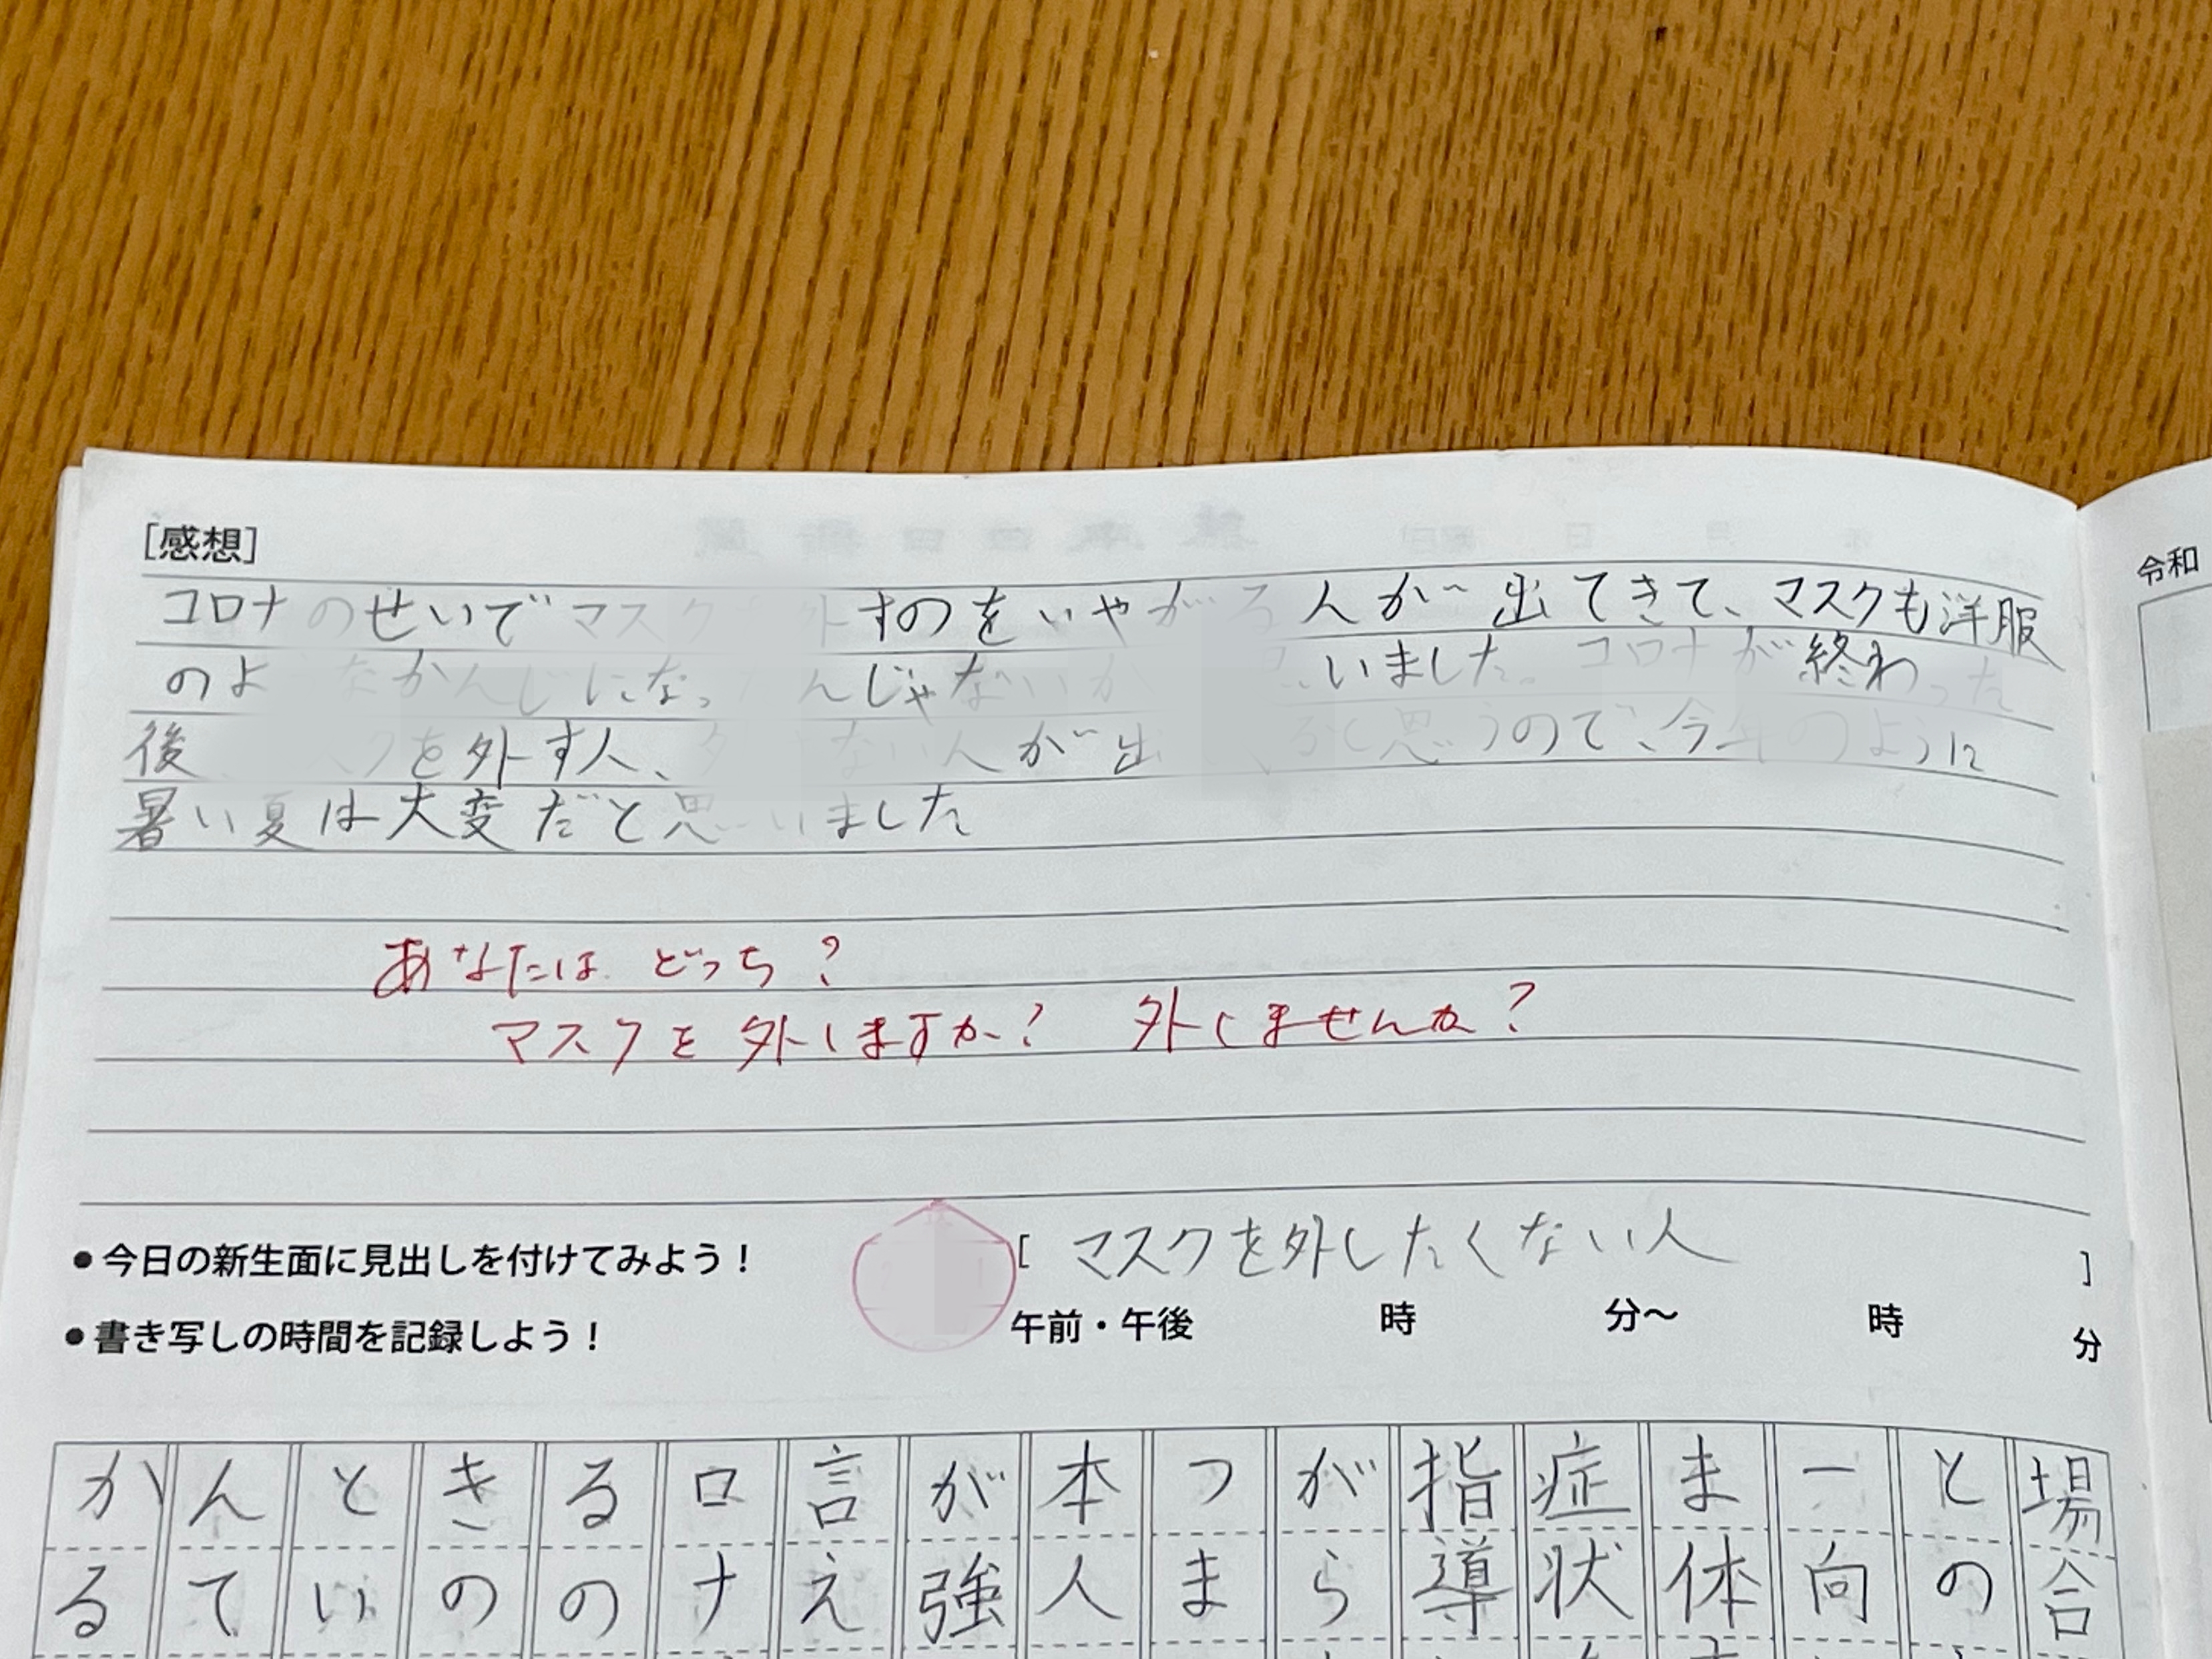 [感想]
コロナのせいでマスク 外すのをいやがる人が出てきて、マスクも洋服
のよ なかんじになっ んじゃないか いました。コロナが終わった
後 クを外す人、 ない人が出 ると思うので、今年のように
暑い夏は大変だと思いました
あなたは どっち？
マスクを外しますか？ 外しませんか？
●今日の新生面に見出しを付けてみよう！ [ マスクを外したくない人 ]
●書き写しの時間を記録しよう！ 午前・午後 時 分〜 時 分
令和
場合
との
一向
ま体
症状
指導
がら
つま
本人
が強
言え
ロナ
るの
きの
とい
んて
かる